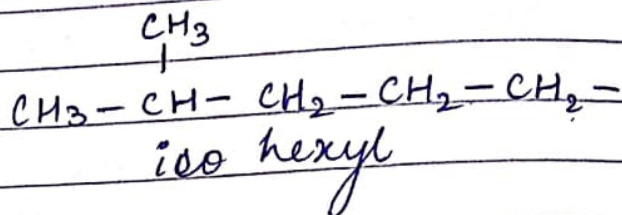 CH3
|
CH3 – CH – CH2 – CH2 – CH2 –
iso hexyl